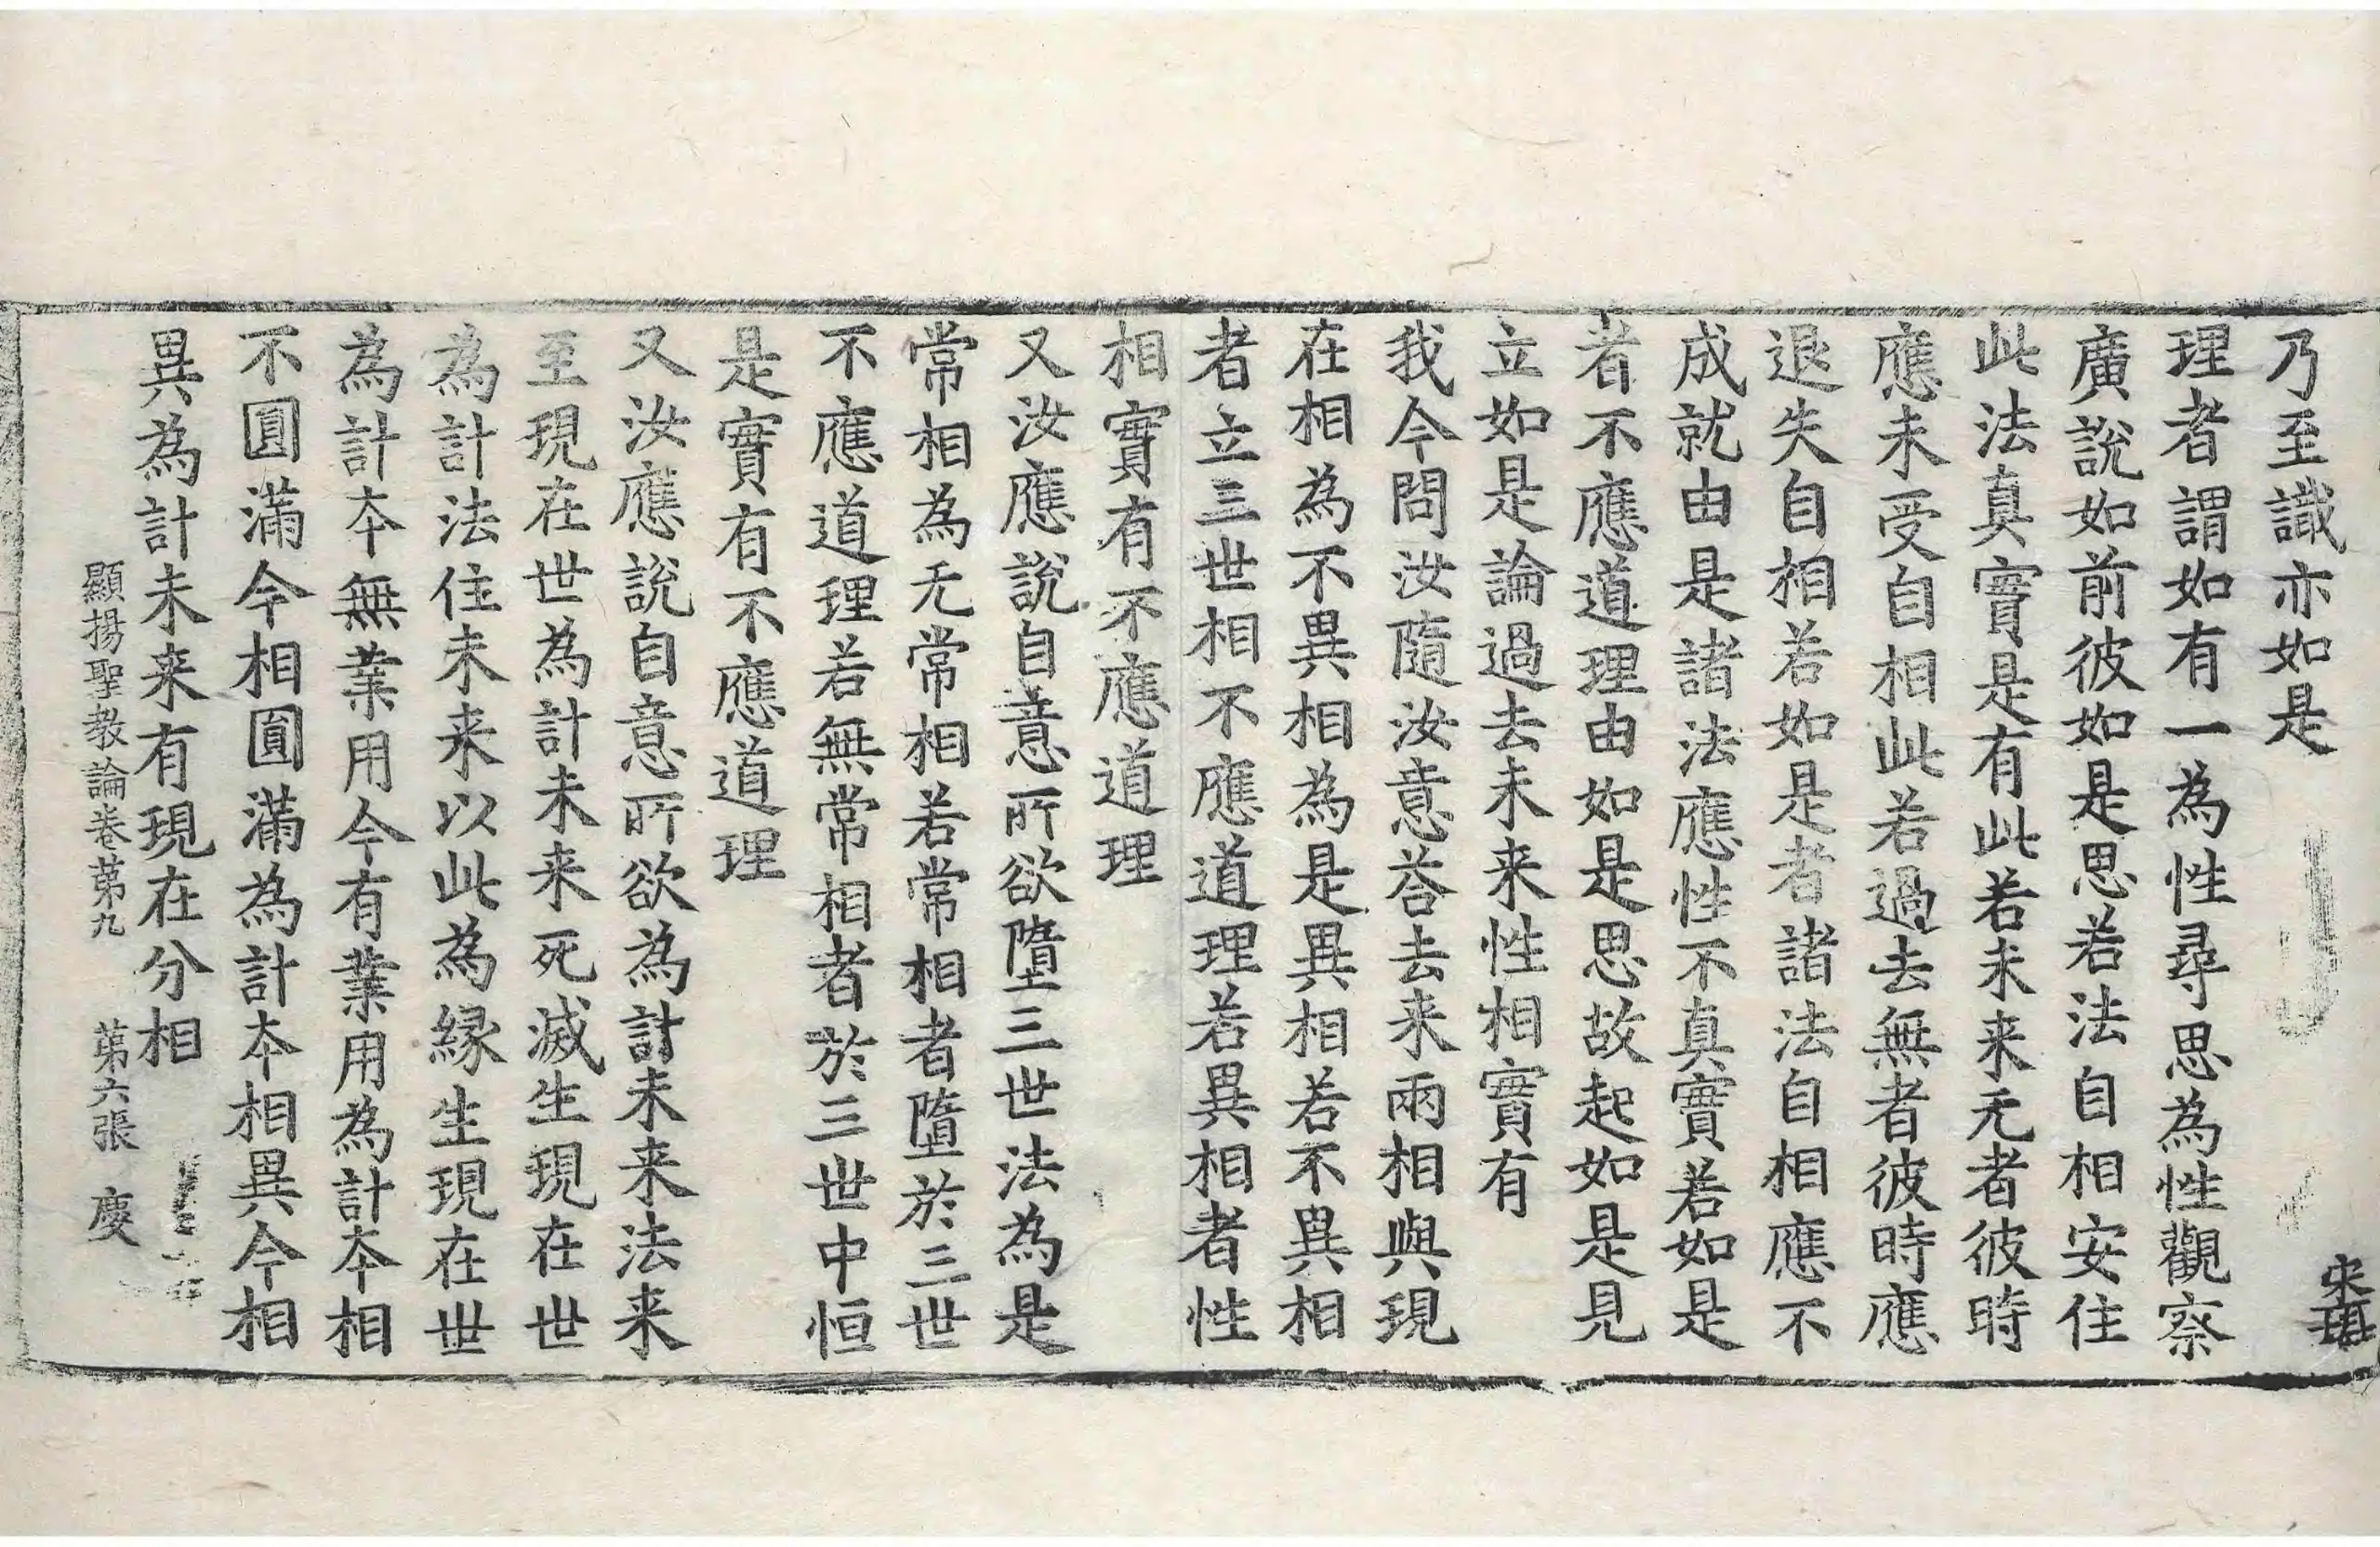 乃至識亦如是
理者謂如有一為性尋思為性觀察
廣說如前彼如是思若法自相安住
此法真實是有此若未来无者彼時
應未受自相此若過去無者彼時應
退失自相若如是者諸法自相應不
成就由是諸法應性不真實若如是
者不應道理由如是思故起如是見
立如是論過去未来性相實有
我今問汝隨汝意荅去来兩相與現
在相為不異相為是異相若不異相
者立三世相不應道理若異相者性
相實有不應道理
又汝應說自意所欲墮三世法為是
常相為无常相若常相者墮於三世
不應道理若無常相者於三世中恒
是實有不應道理
又汝應說自意所欲為計未来法来
至現在世為計未来死滅生現在世
為計法住未来以此為緣生現在世
為計夲無業用今有業用為計夲相
不圓滿今相圓滿為計夲相異今相
異為計未来有現在分相
顯揚聖教論卷苐九　苐六張　慶